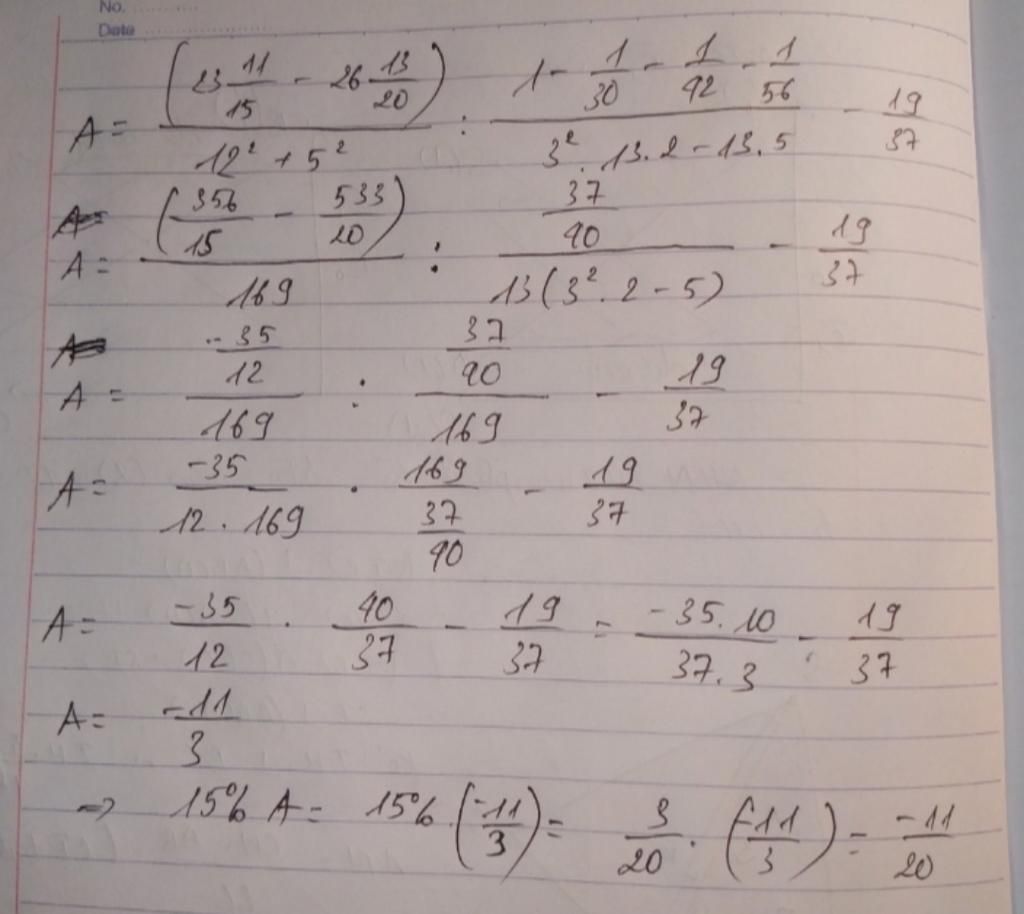 No. ............
Date ..................
A = (23 11/15 - 26 13/20) / (12² + 5²) : (1 - 1/30 - 1/42 - 1/56) / (3² . 13.2 - 13.5) - 19/37
A = (356/15 - 533/20) / 169 : (37/40) / (13(3² . 2 - 5)) - 19/37
A = (-35/12) / 169 : (37/40) / 169 - 19/37
A = -35 / (12 . 169) . 169 / (37/40) - 19/37
A = -35/12 . 40/37 - 19/37 = (-35.10) / (37.3) - 19/37
A = -11/3
⇒ 15% A = 15% . (-11/3) = 3/20 . (-11/3) = -11/20